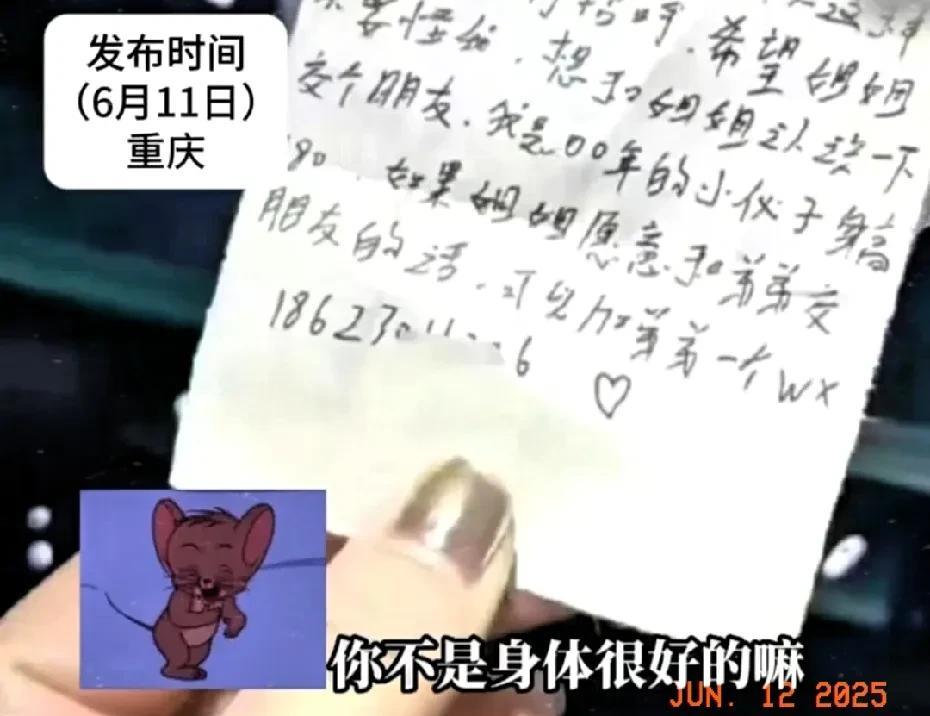 发布时间
（6月11日）
重庆
希望姐姐
想和姐姐认识一下
交个朋友.我是00年的小伙子身高
如果姐姐愿意和弟弟交
朋友的话.可以加弟弟一个wx
18623
6 ♡
你不是身体很好的嘛
JUN. 12 2025